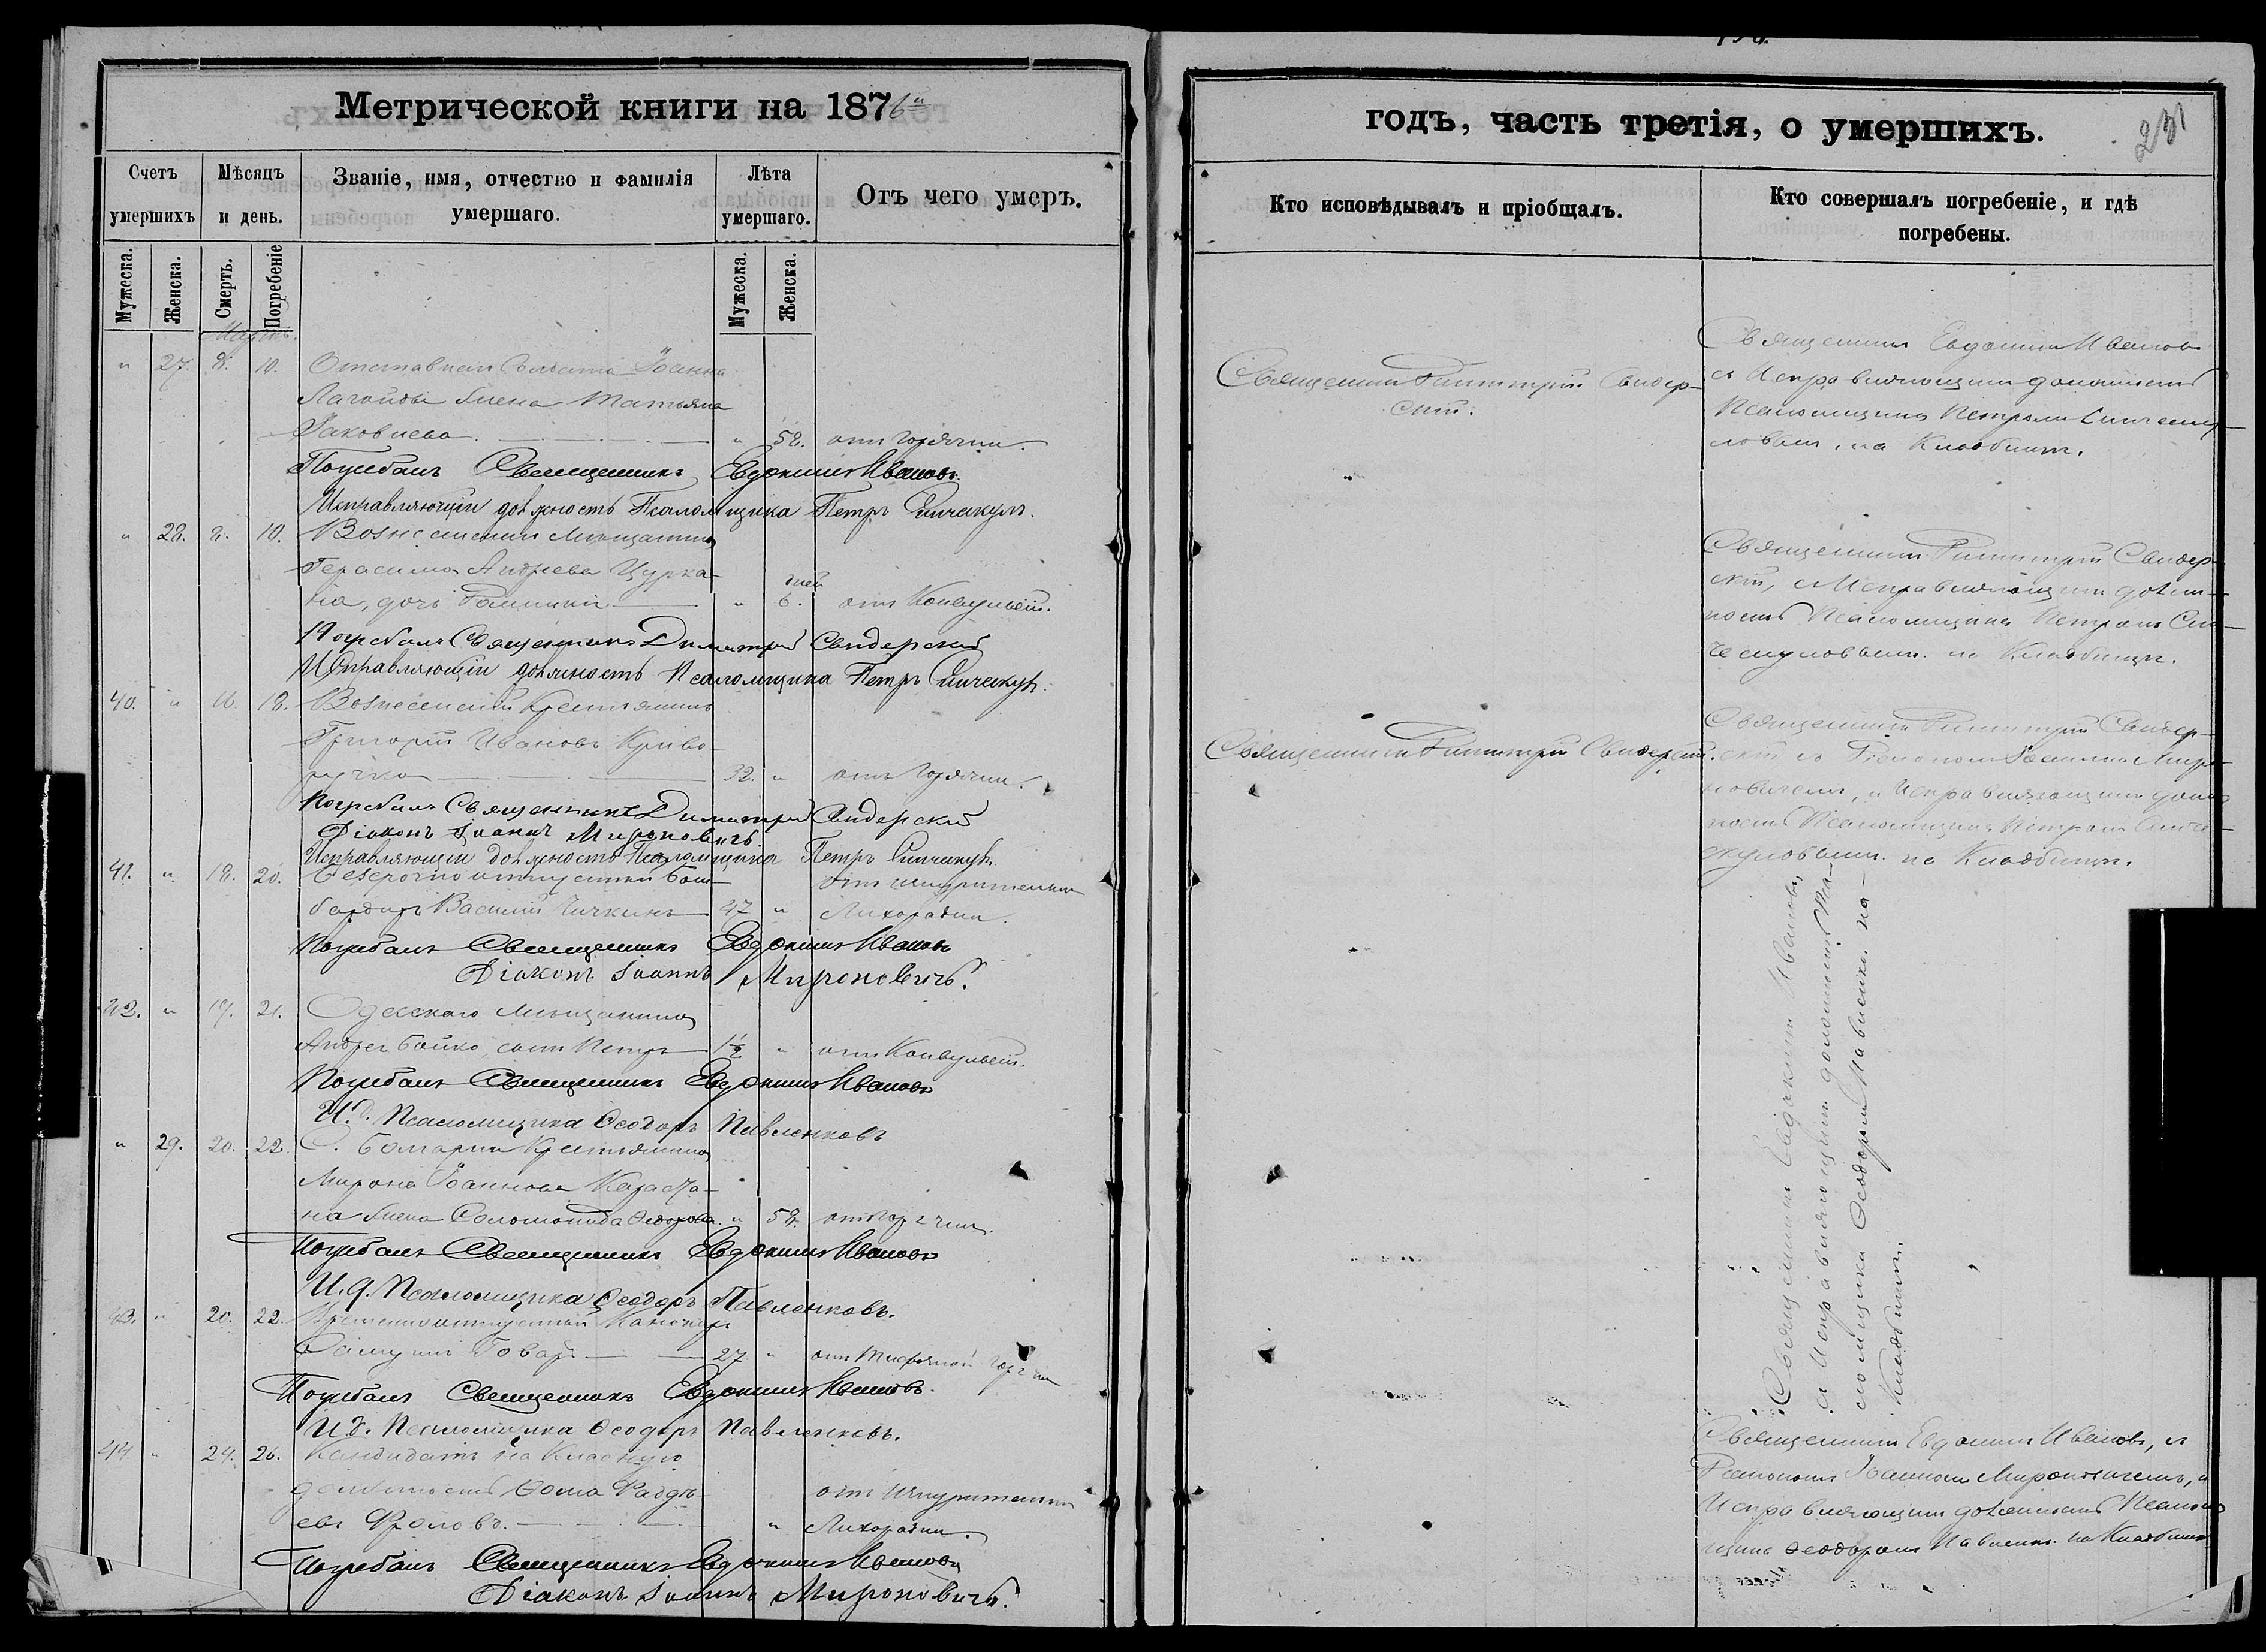 Метрической книги на 1876й
Счетъ умершихъ
Мѣсяцъ и день.
Званіе, имя, отчество и фамилія умершаго.
Лѣта умершаго.
Отъ чего умеръ.
Мужеска.
Женска.
Смерть.
Погребеніе
Мужеска.
Женска.
Мартъ.
" 27. 8. 10. Іоанна
жена Татьяна
Яковлева " 58. отъ горячки.
Погребалъ Священникъ Евдокимъ Ивановъ
Исправляющій должность Псаломщика Петръ
" 28. 8. 10. Вознесенскаго Мещанина
Герасима Андреева Цурка-
на, дочь " 6. дней отъ Конвульсій.
Погребалъ Священникъ Димитрій Свидерскій
Исправляющій должность Псаломщика Петръ
40. " 16. 18. Вознесенскій Крестьянинъ
Григорій Ивановъ Криво-
ручко 32. " отъ горячки.
Погребалъ Священникъ Димитрій Свидерскій
Діаконъ Іоаннъ Мироновичъ.
Исправляющій должность Псаломщика Петръ
41. " 18. 20. Безсрочноотпускной Бом-
бардиръ Василій Чичкинъ 47 " отъ изнурительной
Лихорадки.
Погребалъ Священникъ Евдокимъ Ивановъ
Діаконъ Іоаннъ Мироновичъ.
42. " 19. 21. Одесскаго Мещанина
Андрея Бойко, сынъ Петръ 1½ " отъ Конвульсій.
Погребалъ Священникъ Евдокимъ Ивановъ
И.д. Псаломщика Ѳеодоръ Павленковъ
" 29. 20. 22. С. Болгарки Крестьянина
Мирона Іоаннова
на жена Соломонида Ѳедорова " 58. отъ горячки.
Погребалъ Священникъ Евдокимъ Ивановъ
И.д. Псаломщика Ѳеодоръ Павленковъ.
43. " 20. 22. Временноотпускной Канониръ
27 " отъ Тифозной горячки
Погребалъ Священникъ Евдокимъ Ивановъ.
И.д. Псаломщика Ѳеодоръ Павленковъ.
44 " 24. 26. Кандидатъ на Классную
должность Ѳома
Фроловъ. " отъ изнурительной
Лихорадки.
Погребалъ Священникъ Евдокимъ Ивановъ
Діаконъ Іоаннъ Мироновичъ.
годъ, часть третія, о умершихъ.
231
Кто исповѣдывалъ и пріобщалъ.
Кто совершалъ погребеніе, и гдѣ погребены.
Священникъ Димитрій Свидер-
скій.
Священникъ Евдокимъ Ивановъ
съ Исправляющимъ должность
Псаломщика Петромъ
на Кладбищѣ.
Священникъ Димитрій Свидер-
скій, съ Исправляющимъ долж-
ность Псаломщика Петромъ
на Кладбищѣ.
Священникъ Димитрій Свидерскій.
Священникъ Димитрій Свидер-
скій съ Діакономъ Іоанномъ Миро-
новичемъ, и Исправляющимъ долж-
ность Псаломщика Петромъ
на Кладбищѣ.
Священникъ Евдокимъ Ивановъ,
съ Исправляющимъ должность Пса-
ломщика Ѳеодоромъ на
Кладбищѣ.
Священникъ Евдокимъ Ивановъ, съ
Діакономъ Іоанномъ Мироновичемъ, и
Исправляющимъ должность Псалом-
щика Ѳеодоромъ на Кладбищѣ